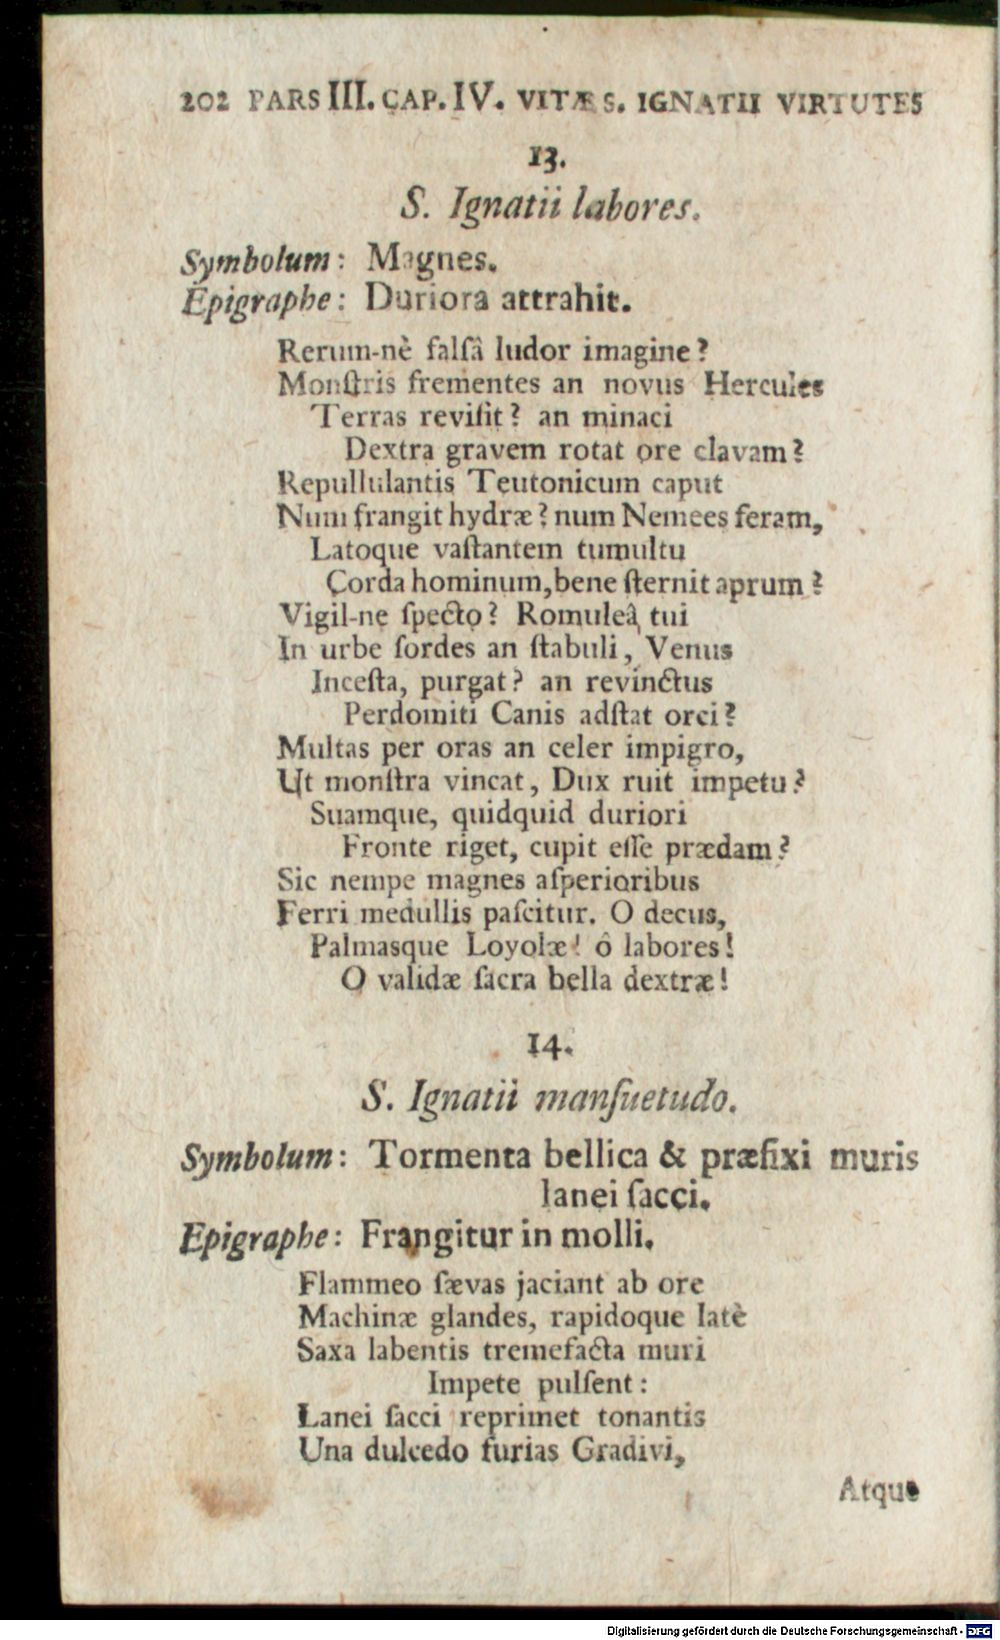 202 PARS III. CAP. IV. VITÆ S. IGNATII VIRTUTES
13.
S. Ignatii labores.
Symbolum: Magnes.
Epigraphe: Duriora attrahit.
Rerum-nè falſâ ludor imagine?
Monſtris frementes an novus Hercules
Terras reviſit? an minaci
Dextra gravem rotat ore clavam?
Repullulantis Teutonicum caput
Num frangit hydræ? num Nemees feram,
Latoque vaſtantem tumultu
Corda hominum, bene ſternit aprum?
Vigil-ne ſpecto? Romuleâ tui
In urbe ſordes an ſtabuli, Venus
Inceſta, purgat? an revinctus
Perdomiti Canis adſtat orci?
Multas per oras an celer impigro,
Ut monſtra vincat, Dux ruit impetu?
Suamque, quidquid duriori
Fronte riget, cupit eſſe prædam?
Sic nempe magnes aſperioribus
Ferri medullis paſcitur. O decus,
Palmasque Loyolæ! ô labores!
O validæ ſacra bella dextræ!
14.
S. Ignatii manſuetudo.
Symbolum: Tormenta bellica & præfixi muris
lanei ſacci.
Epigraphe: Frangitur in molli.
Flammeo ſævas jaciant ab ore
Machinæ glandes, rapidoque latè
Saxa labentis tremefacta muri
Impete pulſent:
Lanei ſacci reprimet tonantis
Una dulcedo furias Gradivi,
Atque
Digitalisierung gefördert durch die Deutsche Forschungsgemeinschaft - DFG